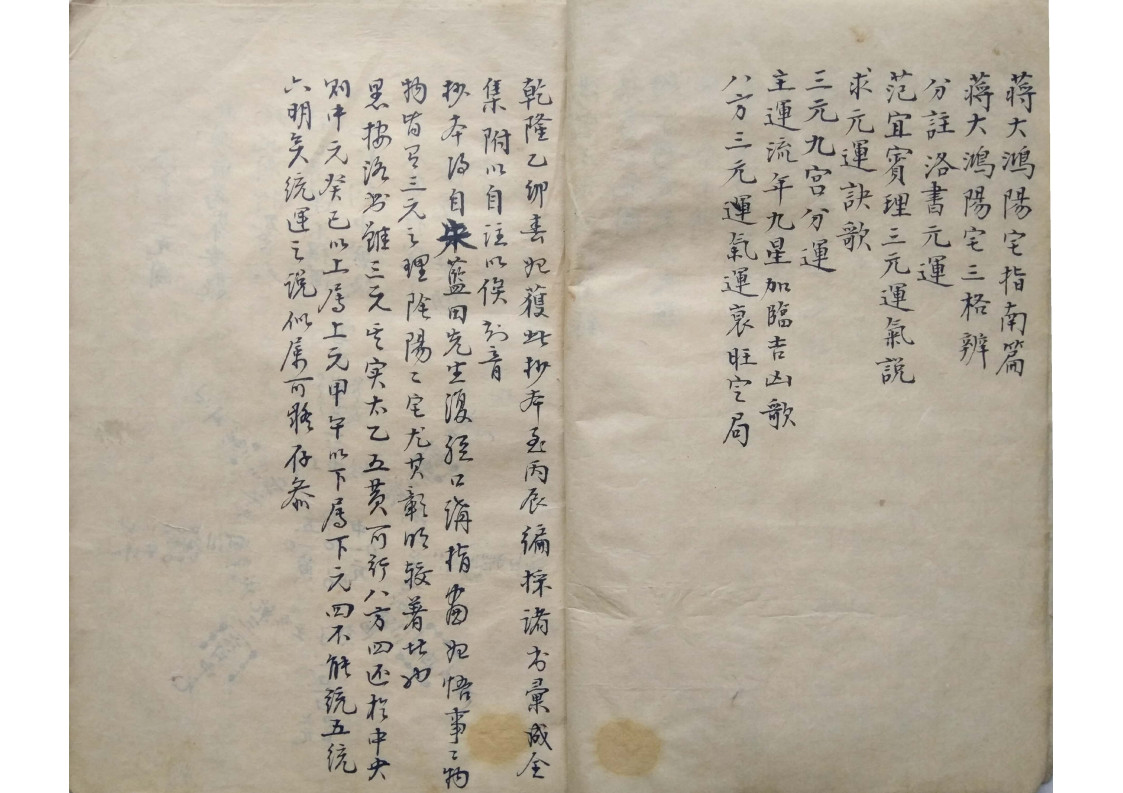 蔣大鴻陽宅指南篇
蔣大鴻陽宅三格辨
分註洛書元運
范宜賓理三元運氣説
求元運訣歌
三元九宮分運
主運流年九星加臨吉凶歌
八方三元運氣運衰旺定局
乾隆乙卯春始獲此抄本至丙辰編採諸书彙成全
集附以自註以俟知音
抄本得自宋藍田先生復經口講指畫始悟事〻物
物皆有三元之理陰陽二宅尤其彰明較著者也
愚按洛书雖三元其实太乙五黄可行八方四还於中央
则中元癸巳以上属上元甲午以下属下元四不能统五统
六明矣统運之説似属可疑存叅